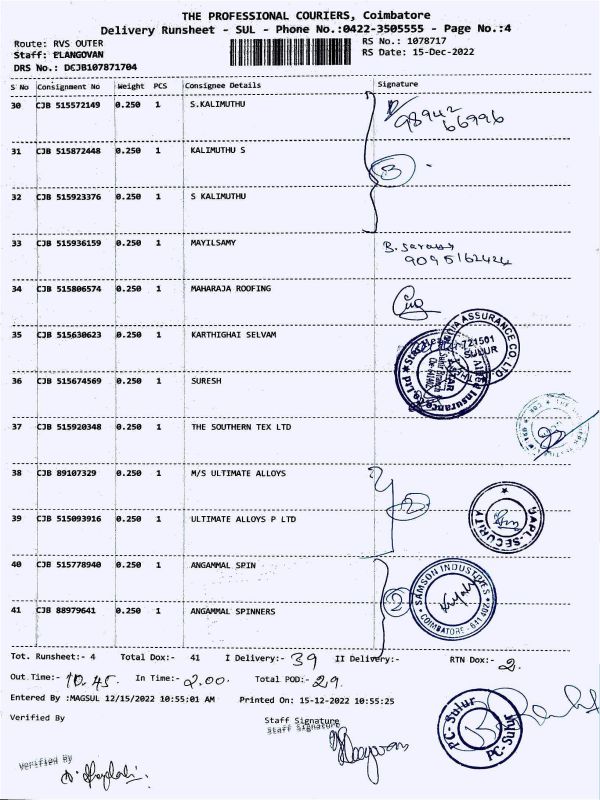 THE PROFESSIONAL COURIERS, Coimbatore
Delivery Runsheet - SUL - Phone No.:0422-3505555 - Page No.:4
Route: RVS OUTER
RS No.: 1078717
Staff: ELANGOVAN
RS Date: 15-Dec-2022
DRS No.: DCJB107871704
S No Consignment No Weight PCS Consignee Details Signature
30 CJB 515572149 0.250 1 S.KALIMUTHU
98942
66996
31 CJB 515872448 0.250 1 KALIMUTHU S
3
32 CJB 515923376 0.250 1 S KALIMUTHU
33 CJB 515936159 0.250 1 MAYILSAMY
34 CJB 515806574 0.250 1 MAHARAJA ROOFING
35 CJB 515630623 0.250 1 KARTHIGHAI SELVAM
ASSURANCE CO. LTD.
721501
SULUR
36 CJB 515674569 0.250 1 SURESH
37 CJB 515920348 0.250 1 THE SOUTHERN TEX LTD
38 CJB 89107329 0.250 1 M/S ULTIMATE ALLOYS
2
39 CJB 515093916 0.250 1 ULTIMATE ALLOYS P LTD
GAPL-SECURITY
40 CJB 515778940 0.250 1 ANGAMMAL SPIN
SAMSON INDUSTRIES
COIMBATORE - 641 402
41 CJB 88979641 0.250 1 ANGAMMAL SPINNERS
2
Tot. Runsheet:- 4 Total Dox:- 41 I Delivery:- 39 II Delivery:- RTN Dox:- 2
Out Time:- 10.45 In Time:- 2.00 Total POD:- 29
Entered By :MAGSUL 12/15/2022 10:55:01 AM Printed On: 15-12-2022 10:55:25
Verified By
Staff Signature
Staff Signature
PC-Sulur
PC-Sulur
Verified By